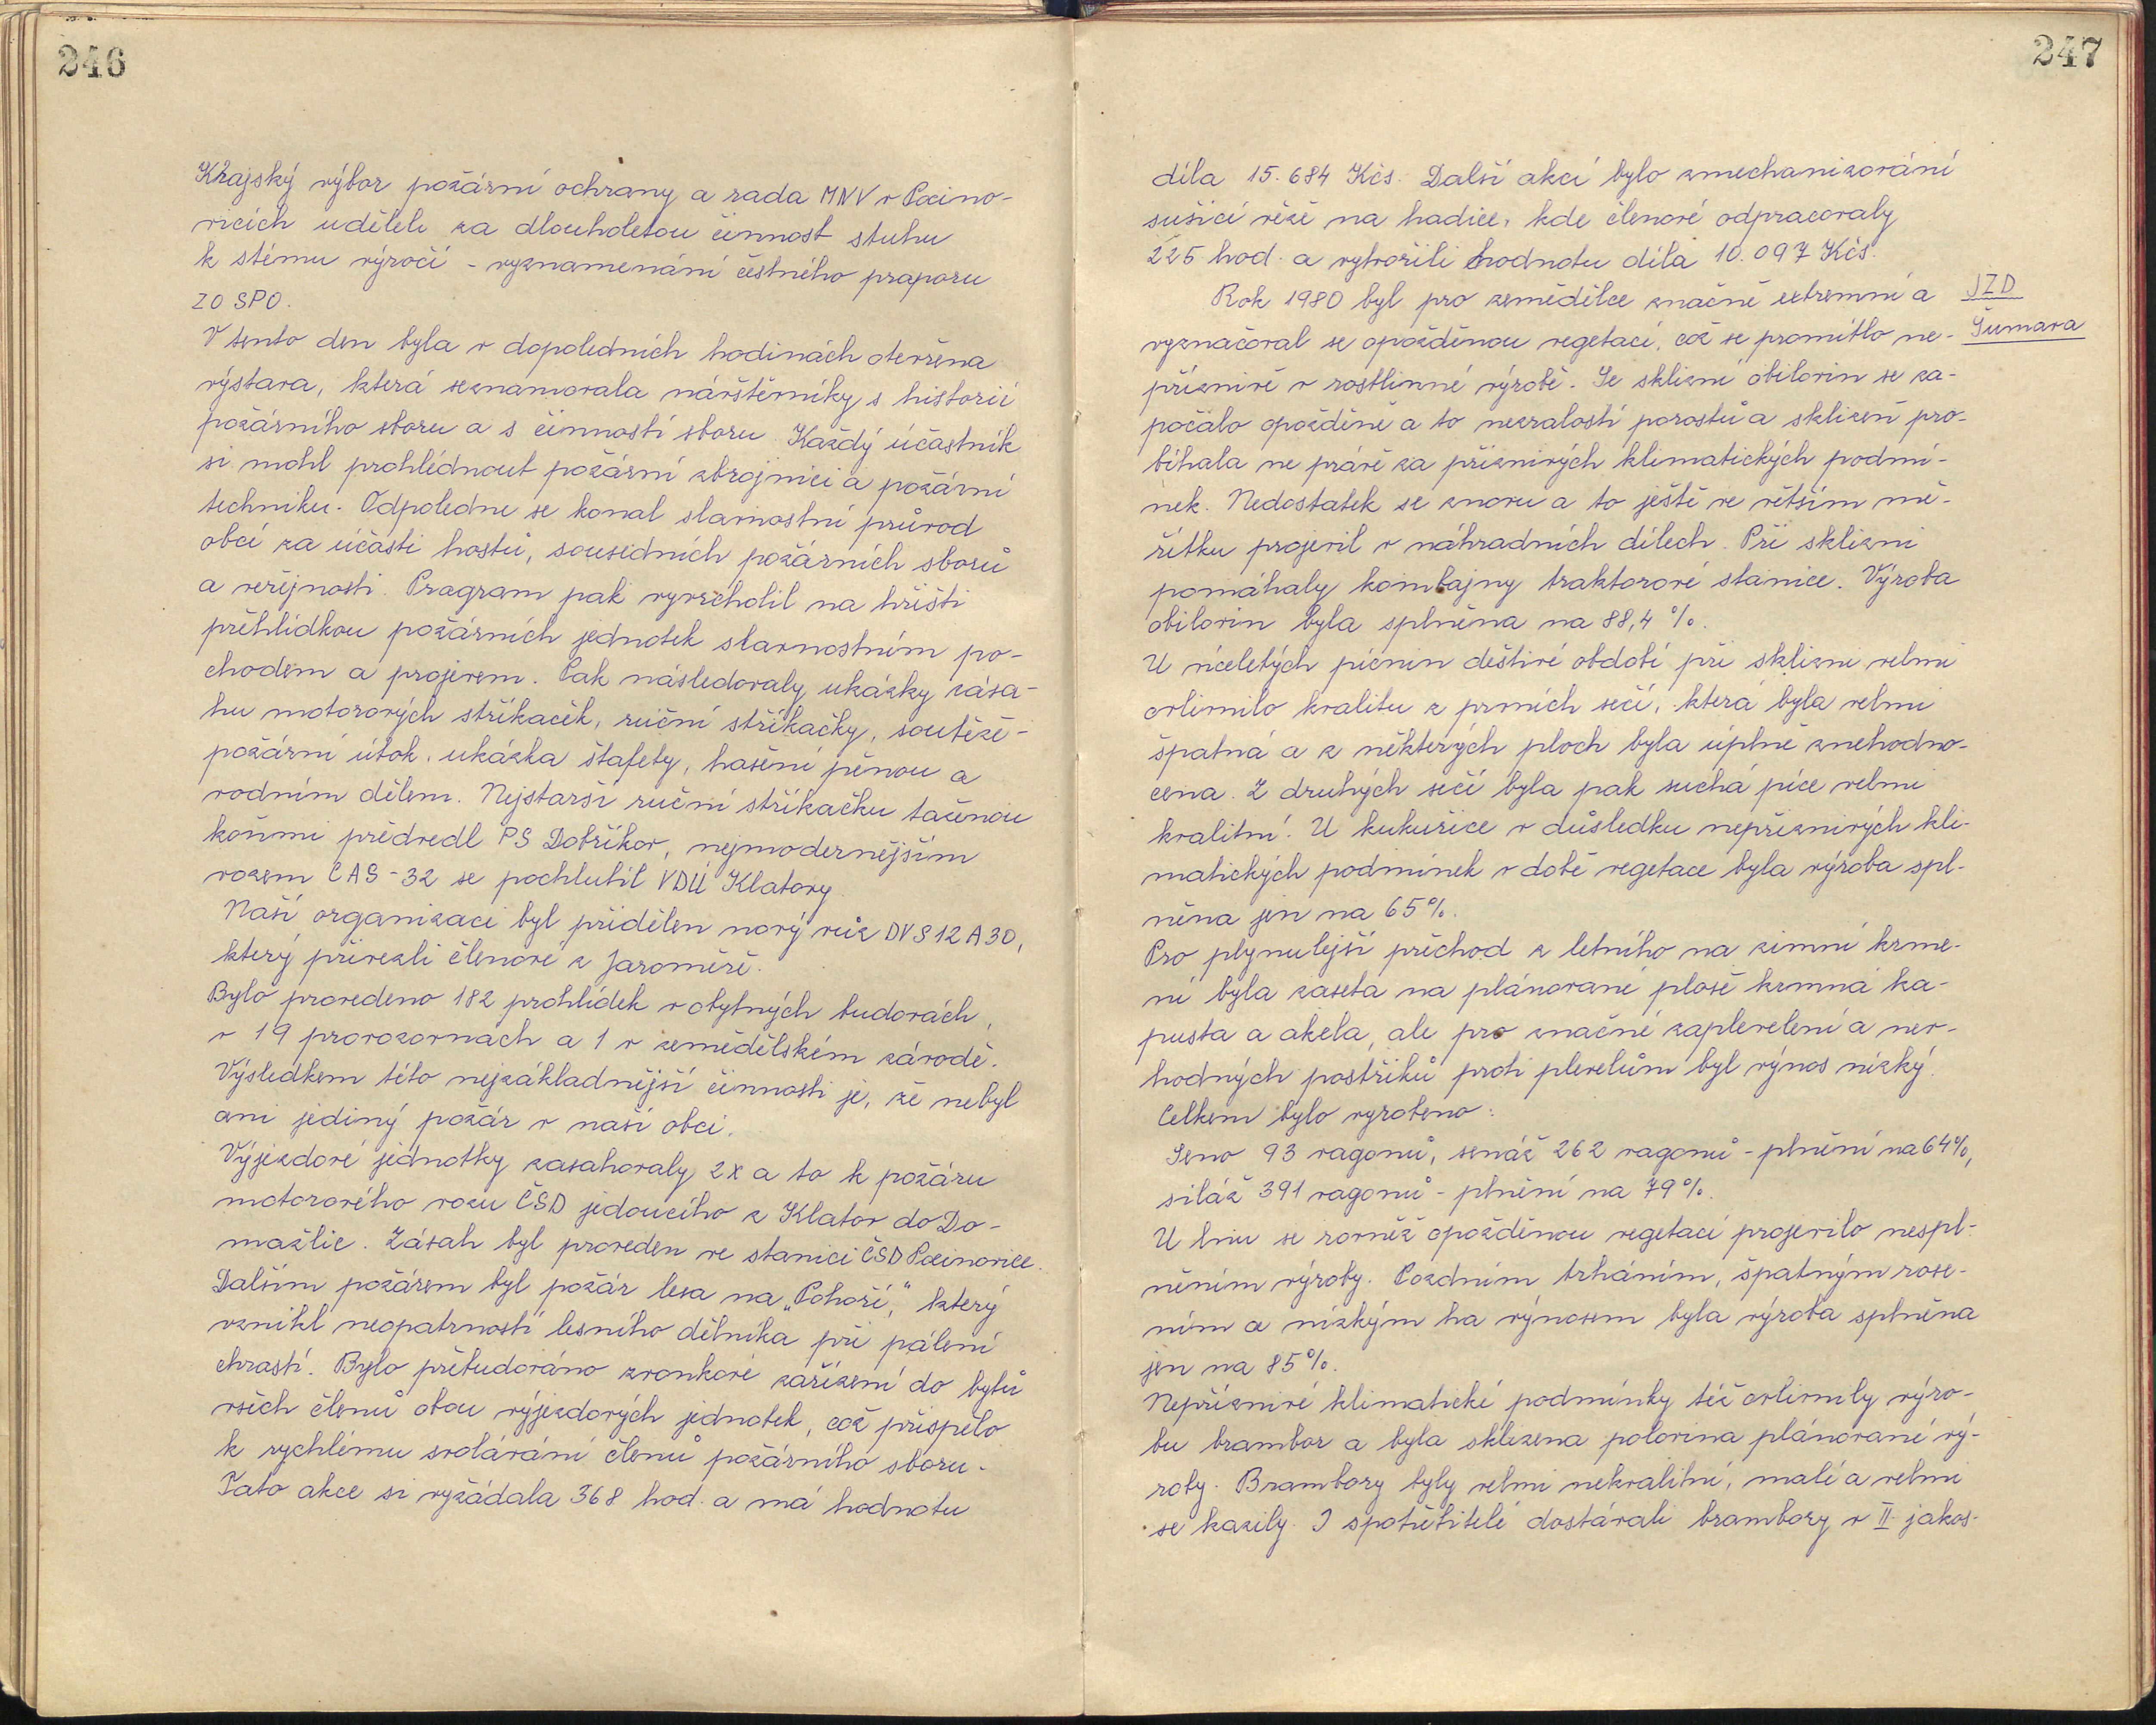 246
Krajský výbor požární ochrany a rada MNV v Pocino-
vicích udělili za dlouholetou činnost stuhu
k stému výročí - vyznamenání čestného praporu
ZO SPO.
V tento den byla v dopoledních hodinách otevřena
výstava, která seznamovala návštěvníky s historií
požárního sboru a s činností sboru. Každý účastník
si mohl prohlédnout požární zbrojnici a požární
techniku. Odpoledne se konal slavnostní průvod
obcí za účasti hostů, sousedních požárních sborů
a veřejnosti. Program pak vyvrcholil na hřišti
přehlídkou požárních jednotek slavnostním po-
chodem a projevem. Pak následovaly ukázky zása-
hu motorových stříkaček, ruční stříkačky, soutěže -
požární útok, ukázka štafety, hašení pěnou a
vodním dělem. Nejstarší ruční stříkačku taženou
koňmi předvedl PS Dobříkov, nejmodernějším
vozem CAS-32 se pochlubil VDÚ Klatovy.
Naší organizaci byl přidělen nový vůz DVS 12 A 30,
který přivezli členové z Jaroměře.
Bylo provedeno 182 prohlídek v obytných budovách,
v 19 provozovnach a 1 v zemědělském závodě.
Výsledkem této nejzákladnější činnosti je, že nebyl
ani jediný požár v naší obci.
Výjezdové jednotky zasahovaly 2x a to k požáru
motorového vozu ČSD jedoucího z Klatov do Do-
mažlic. Zásah byl proveden ve stanici ČSD Pocinovice.
Dalším požárem byl požár lesa na „Pohoří," který
vznikl neopatrností lesního dělníka při pálení
chrastí. Bylo přebudováno zvonkové zařízení do bytů
všech členů obou výjezdových jednotek, což přispělo
k rychlému svolávání členů požárního sboru.
Tato akce si vyžádala 368 hod. a má hodnotu
247
díla 15.684 Kčs. Další akcí bylo zmechanizování
sušící věže na hadice, kde členové odpracovaly
225 hod. a vytvořili hodnotu díla 10.097 Kčs.
Rok 1980 byl pro zemědělce značně extremní a
JZD
Šumava
vyznačoval se opožděnou vegetací, což se promítlo ne-
příznivě v rostlinné výrobě. Se sklizní obilovin se za-
počalo opožděně a to nezralostí porostů a sklizeň pro-
bíhala ne právě za příznivých klimatických podmí-
nek. Nedostatek se znovu a to ještě ve větším mě-
řítku projevil v náhradních dílech. Při sklizni
pomáhaly kombajny traktorové stanice. Výroba
obilovin byla splněna na 88,4 %.
U víceletých pícnin deštivé období při sklizni velmi
ovlivnilo kvalitu z prvních sečí, která byla velmi
špatná a z některých ploch byla úplně znehodno-
cena. Z druhých sečí byla pak suchá píce velmi
kvalitní. U kukuřice v důsledku nepříznivých kli-
matických podmínek v době vegetace byla výroba spl-
něna jen na 65%.
Pro plynulejší přechod z letního na zimní krme-
ní byla zaseta na plánované ploše krmná ka-
pusta a akela, ale pro značné zaplevelení a nev-
hodných postřiků proti plevelům byl výnos nízký.
Celkem bylo vyrobeno:
Seno 93 vagonů, senáž 262 vagonů - plnění na 64%,
siláž 391 vagonů - plnění na 79%.
U lnu se rovněž opožděnou vegetací projevilo nespl-
něním výroby. Pozdním trháním, špatným rose-
ním a nízkým ha výnosem byla výroba splněna
jen na 85%.
Nepříznivé klimatické podmínky též ovlivnily výro-
bu brambor a byla sklizena polovina plánované vý-
roby. Brambory byly velmi nekvalitní, malé a velmi
se kazily. I spotřebitelé dostávali brambory v II. jakos-